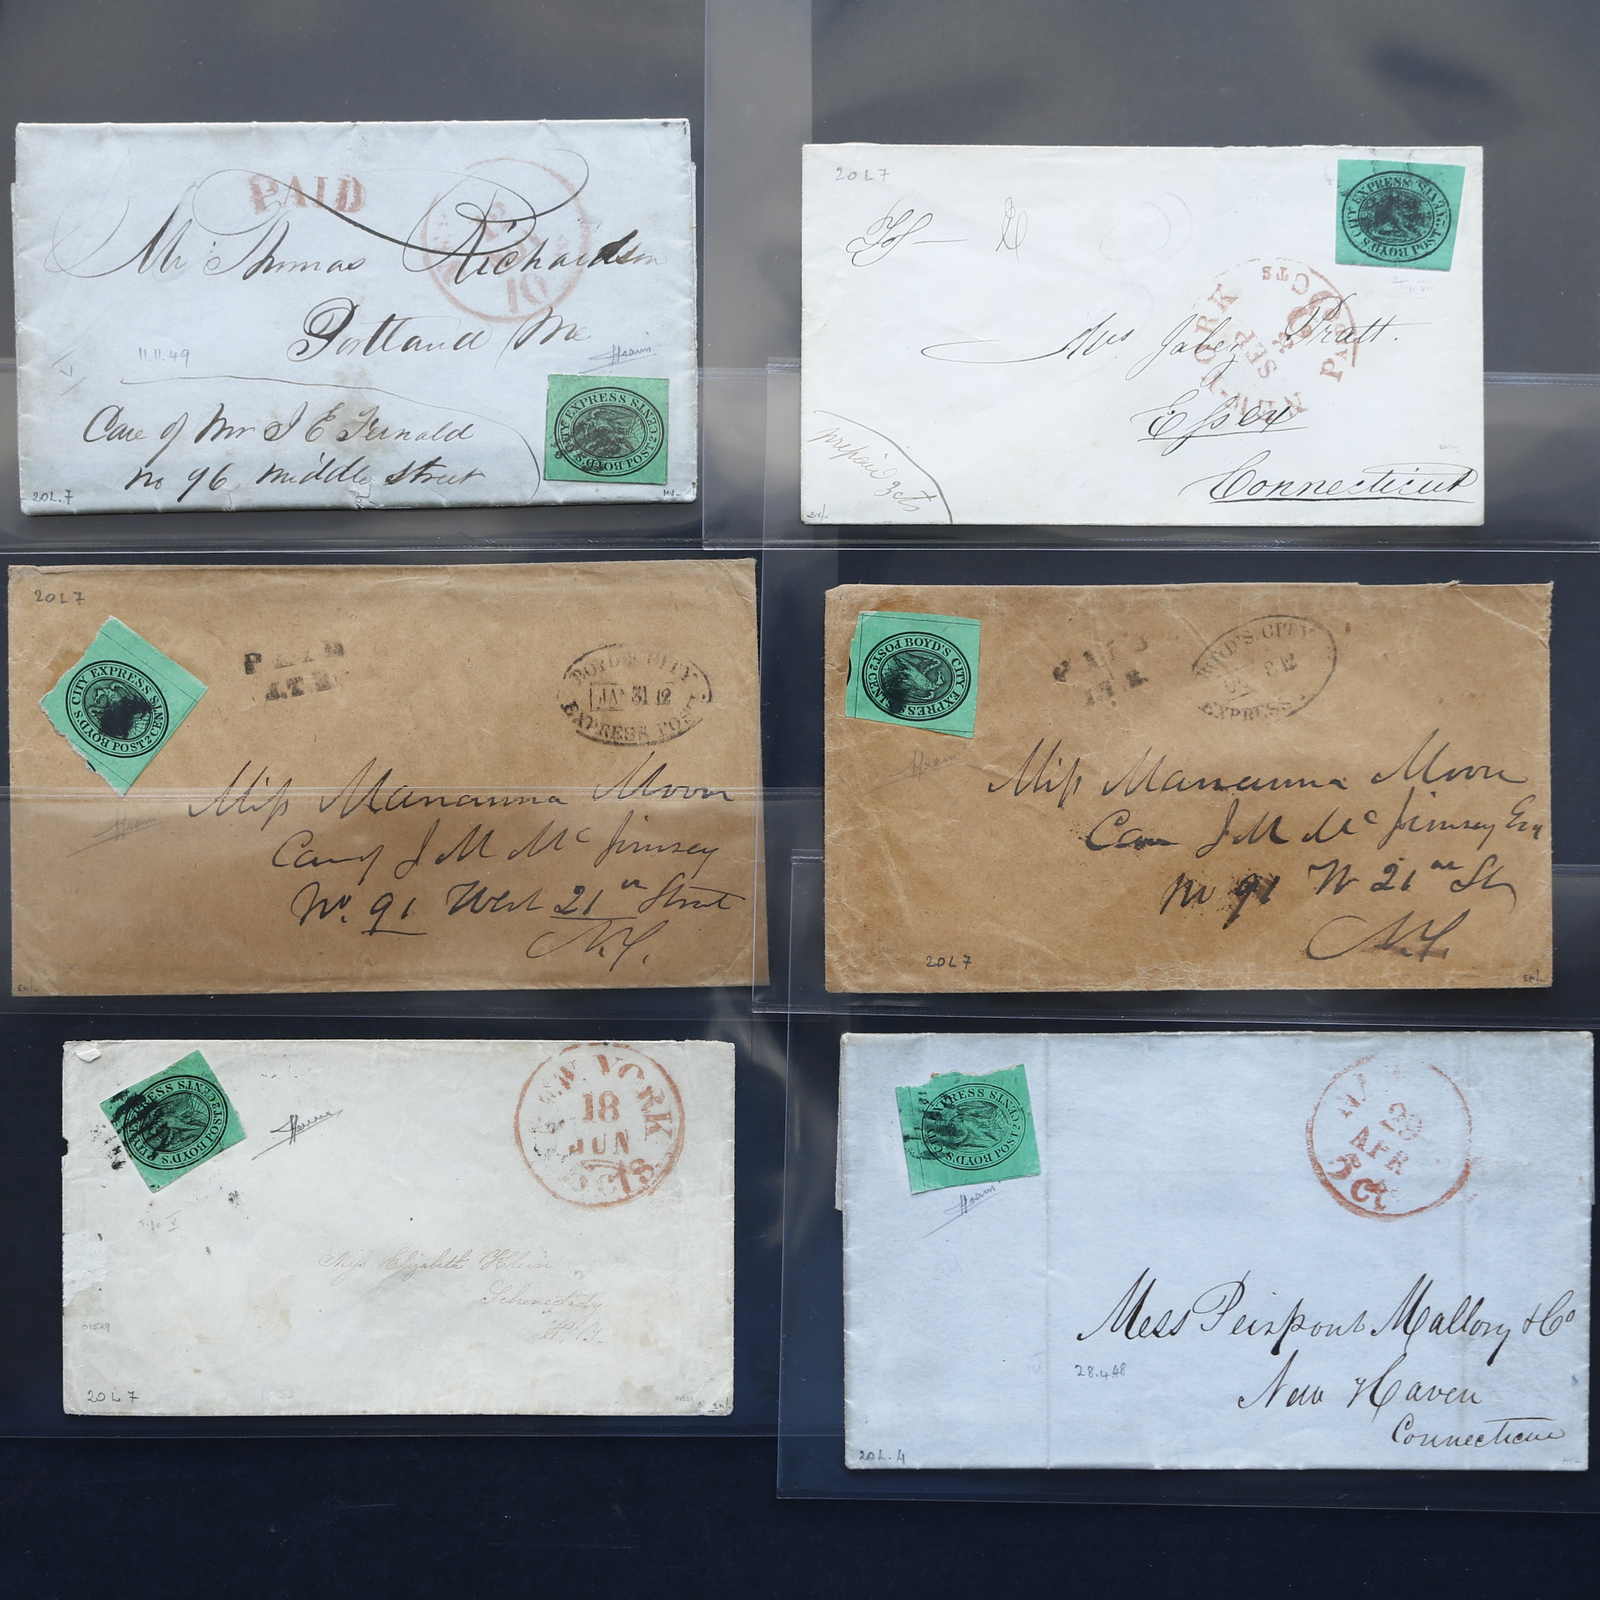 PAID
10
Mr Thomas Richardson
Portland Me
11.11.49
Care of Mr J E Fernald
No 96 Middle Street
20L.7
BOYD'S CITY EXPRESS POST 2 CENTS
20L7
BOYD'S CITY EXPRESS POST 2 CENTS
NEW-YORK
SEP
CTS
PAID
Mrs Jabez Pratt.
Essex
Connecticut
prepaid 3cts
20L7
BOYD'S CITY EXPRESS POST 2 CENTS
PAID
BOYD'S CITY
JAN 31 12
EXPRESS POST
Miss Marianna Moore
Care of J M McJimsey
No. 91 West 21st Street
N.Y.
BOYD'S CITY EXPRESS POST 2 CENTS
PAID
BOYD'S CITY
12
EXPRESS
Miss Marianna Moore
Care J M McJimsey Esq
No 91 W 21st St
N.Y.
20L7
BOYD'S CITY EXPRESS POST 2 CENTS
NEW YORK
18
JUN
5 CTS
Miss Elizabeth
Schenectady
20L7
BOYD'S CITY EXPRESS POST 2 CENTS
APR
5 Ct
Mess Peirpont Mallory & Co
28.4.48
New Haven
Connecticut
20L.4